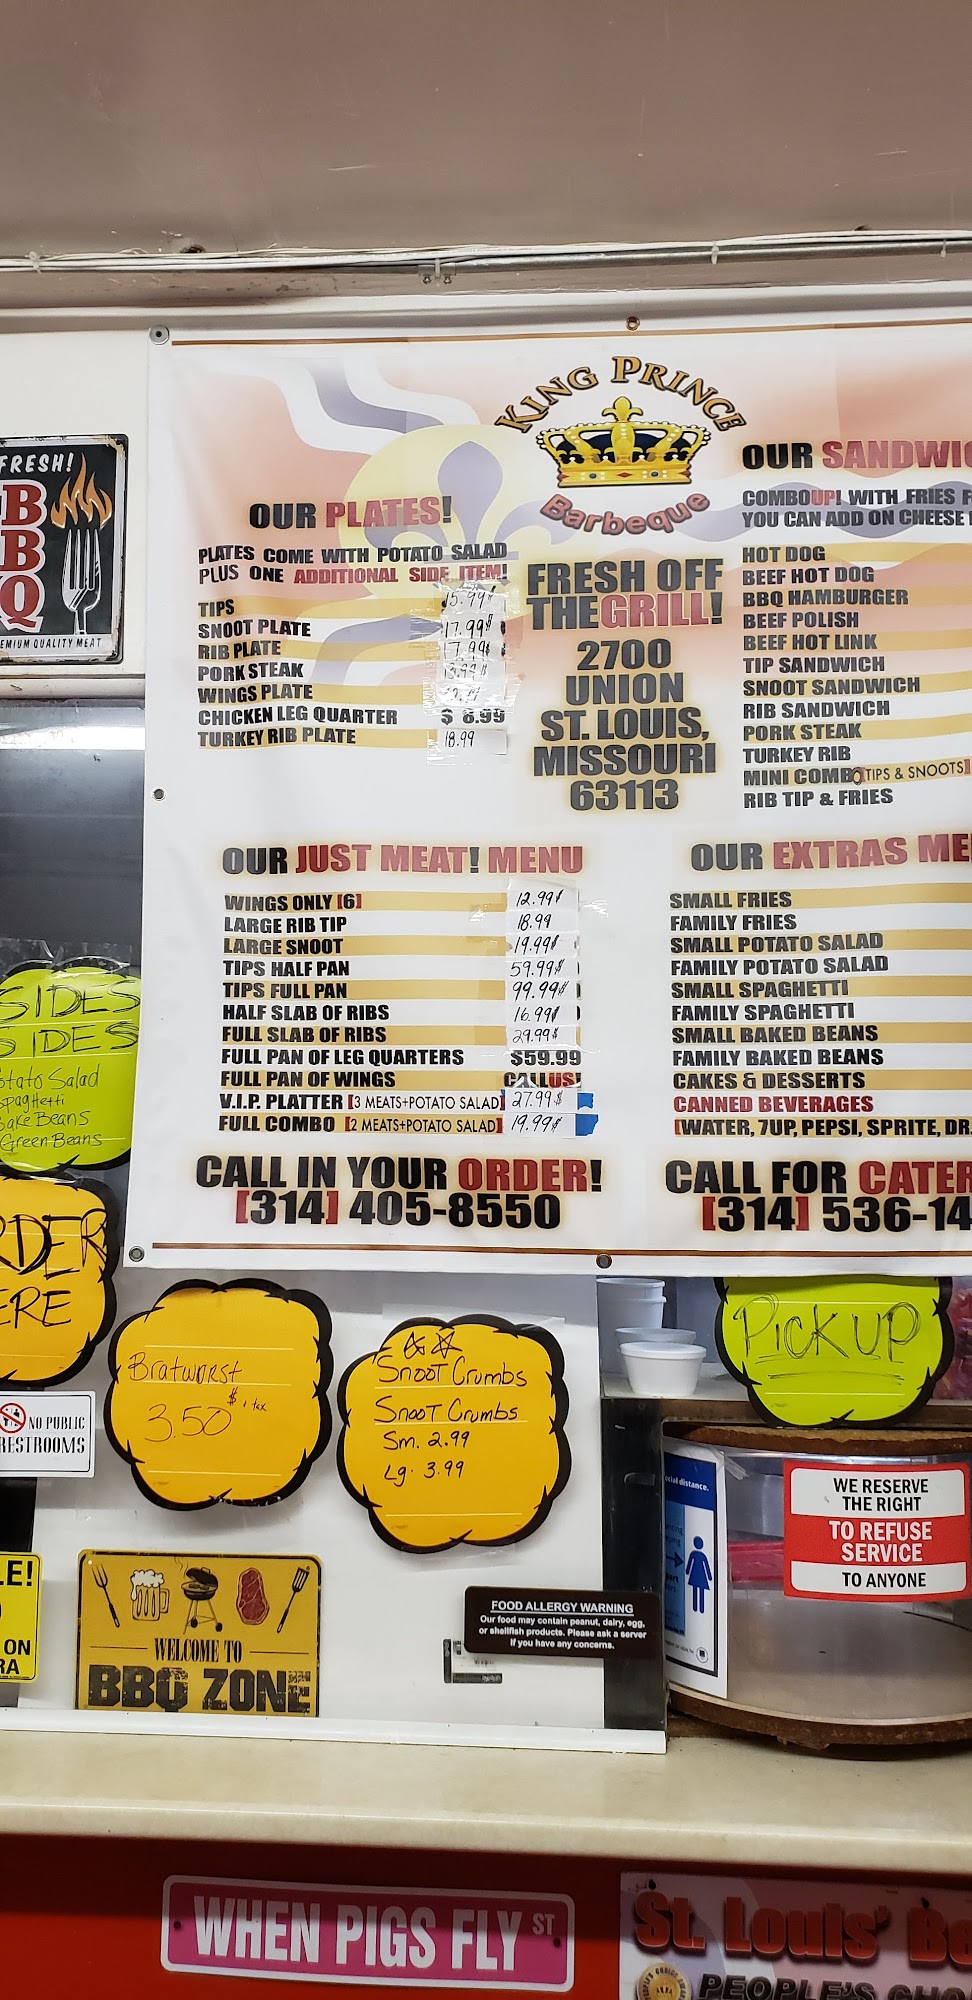 KING PRINCE
Barbeque
FRESH OFF
THE GRILL!
2700
UNION
ST. LOUIS,
MISSOURI
63113
OUR PLATES!
PLATES COME WITH POTATO SALAD
PLUS ONE ADDITIONAL SIDE ITEM!
TIPS 15.99
SNOOT PLATE 17.99
RIB PLATE 17.99
PORK STEAK 13.99
WINGS PLATE
CHICKEN LEG QUARTER $ 8.99
TURKEY RIB PLATE 18.99
OUR
COMBO UP! WITH FRIES
YOU CAN ADD ON CHEESE
HOT DOG
BEEF HOT DOG
BBQ HAMBURGER
BEEF POLISH
BEEF HOT LINK
TIP SANDWICH
SNOOT SANDWICH
RIB SANDWICH
PORK STEAK
TURKEY RIB
MINI COMBO [TIPS & SNOOTS]
RIB TIP & FRIES
OUR JUST MEAT! MENU
WINGS ONLY [6] 12.99
LARGE RIB TIP 18.99
LARGE SNOOT 19.99
TIPS HALF PAN 59.99
TIPS FULL PAN 99.99
HALF SLAB OF RIBS 16.99
FULL SLAB OF RIBS 29.99
FULL PAN OF LEG QUARTERS $59.99
FULL PAN OF WINGS CALL US!
V.I.P. PLATTER [3 MEATS+POTATO SALAD] 27.99
FULL COMBO [2 MEATS+POTATO SALAD] 19.99
OUR EXTRAS ME
SMALL FRIES
FAMILY FRIES
SMALL POTATO SALAD
FAMILY POTATO SALAD
SMALL SPAGHETTI
FAMILY SPAGHETTI
SMALL BAKED BEANS
FAMILY BAKED BEANS
CAKES & DESSERTS
CANNED BEVERAGES
[WATER, 7UP, PEPSI, SPRITE, DR.
CALL IN YOUR ORDER!
[314] 405-8550
CALL FOR CATER
[314] 536-14
FRESH!
BBQ
EMIUM QUALITY MEAT
SIDES
SIDES
otato Salad
spaghetti
Bake Beans
Green Beans
RDER
ERE
NO PUBLIC
RESTROOMS
LE!
ON
RA
Bratwurst
3.50 $ + tax
Snoot Crumbs
Snoot Crumbs
Sm. 2.99
Lg. 3.99
Pick up
WELCOME TO
BBQ ZONE
FOOD ALLERGY WARNING
Our food may contain peanut, dairy, egg,
or shellfish products. Please ask a server
if you have any concerns.
cial distance.
WE RESERVE
THE RIGHT
TO REFUSE
SERVICE
TO ANYONE
WHEN PIGS FLY ST.
St. Louis' Be
PEOPLE'S CHO